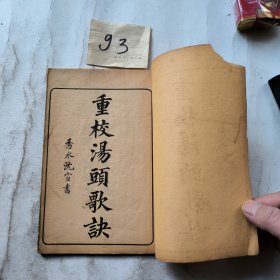 93
重校湯頭歌訣
秀水沈宜書